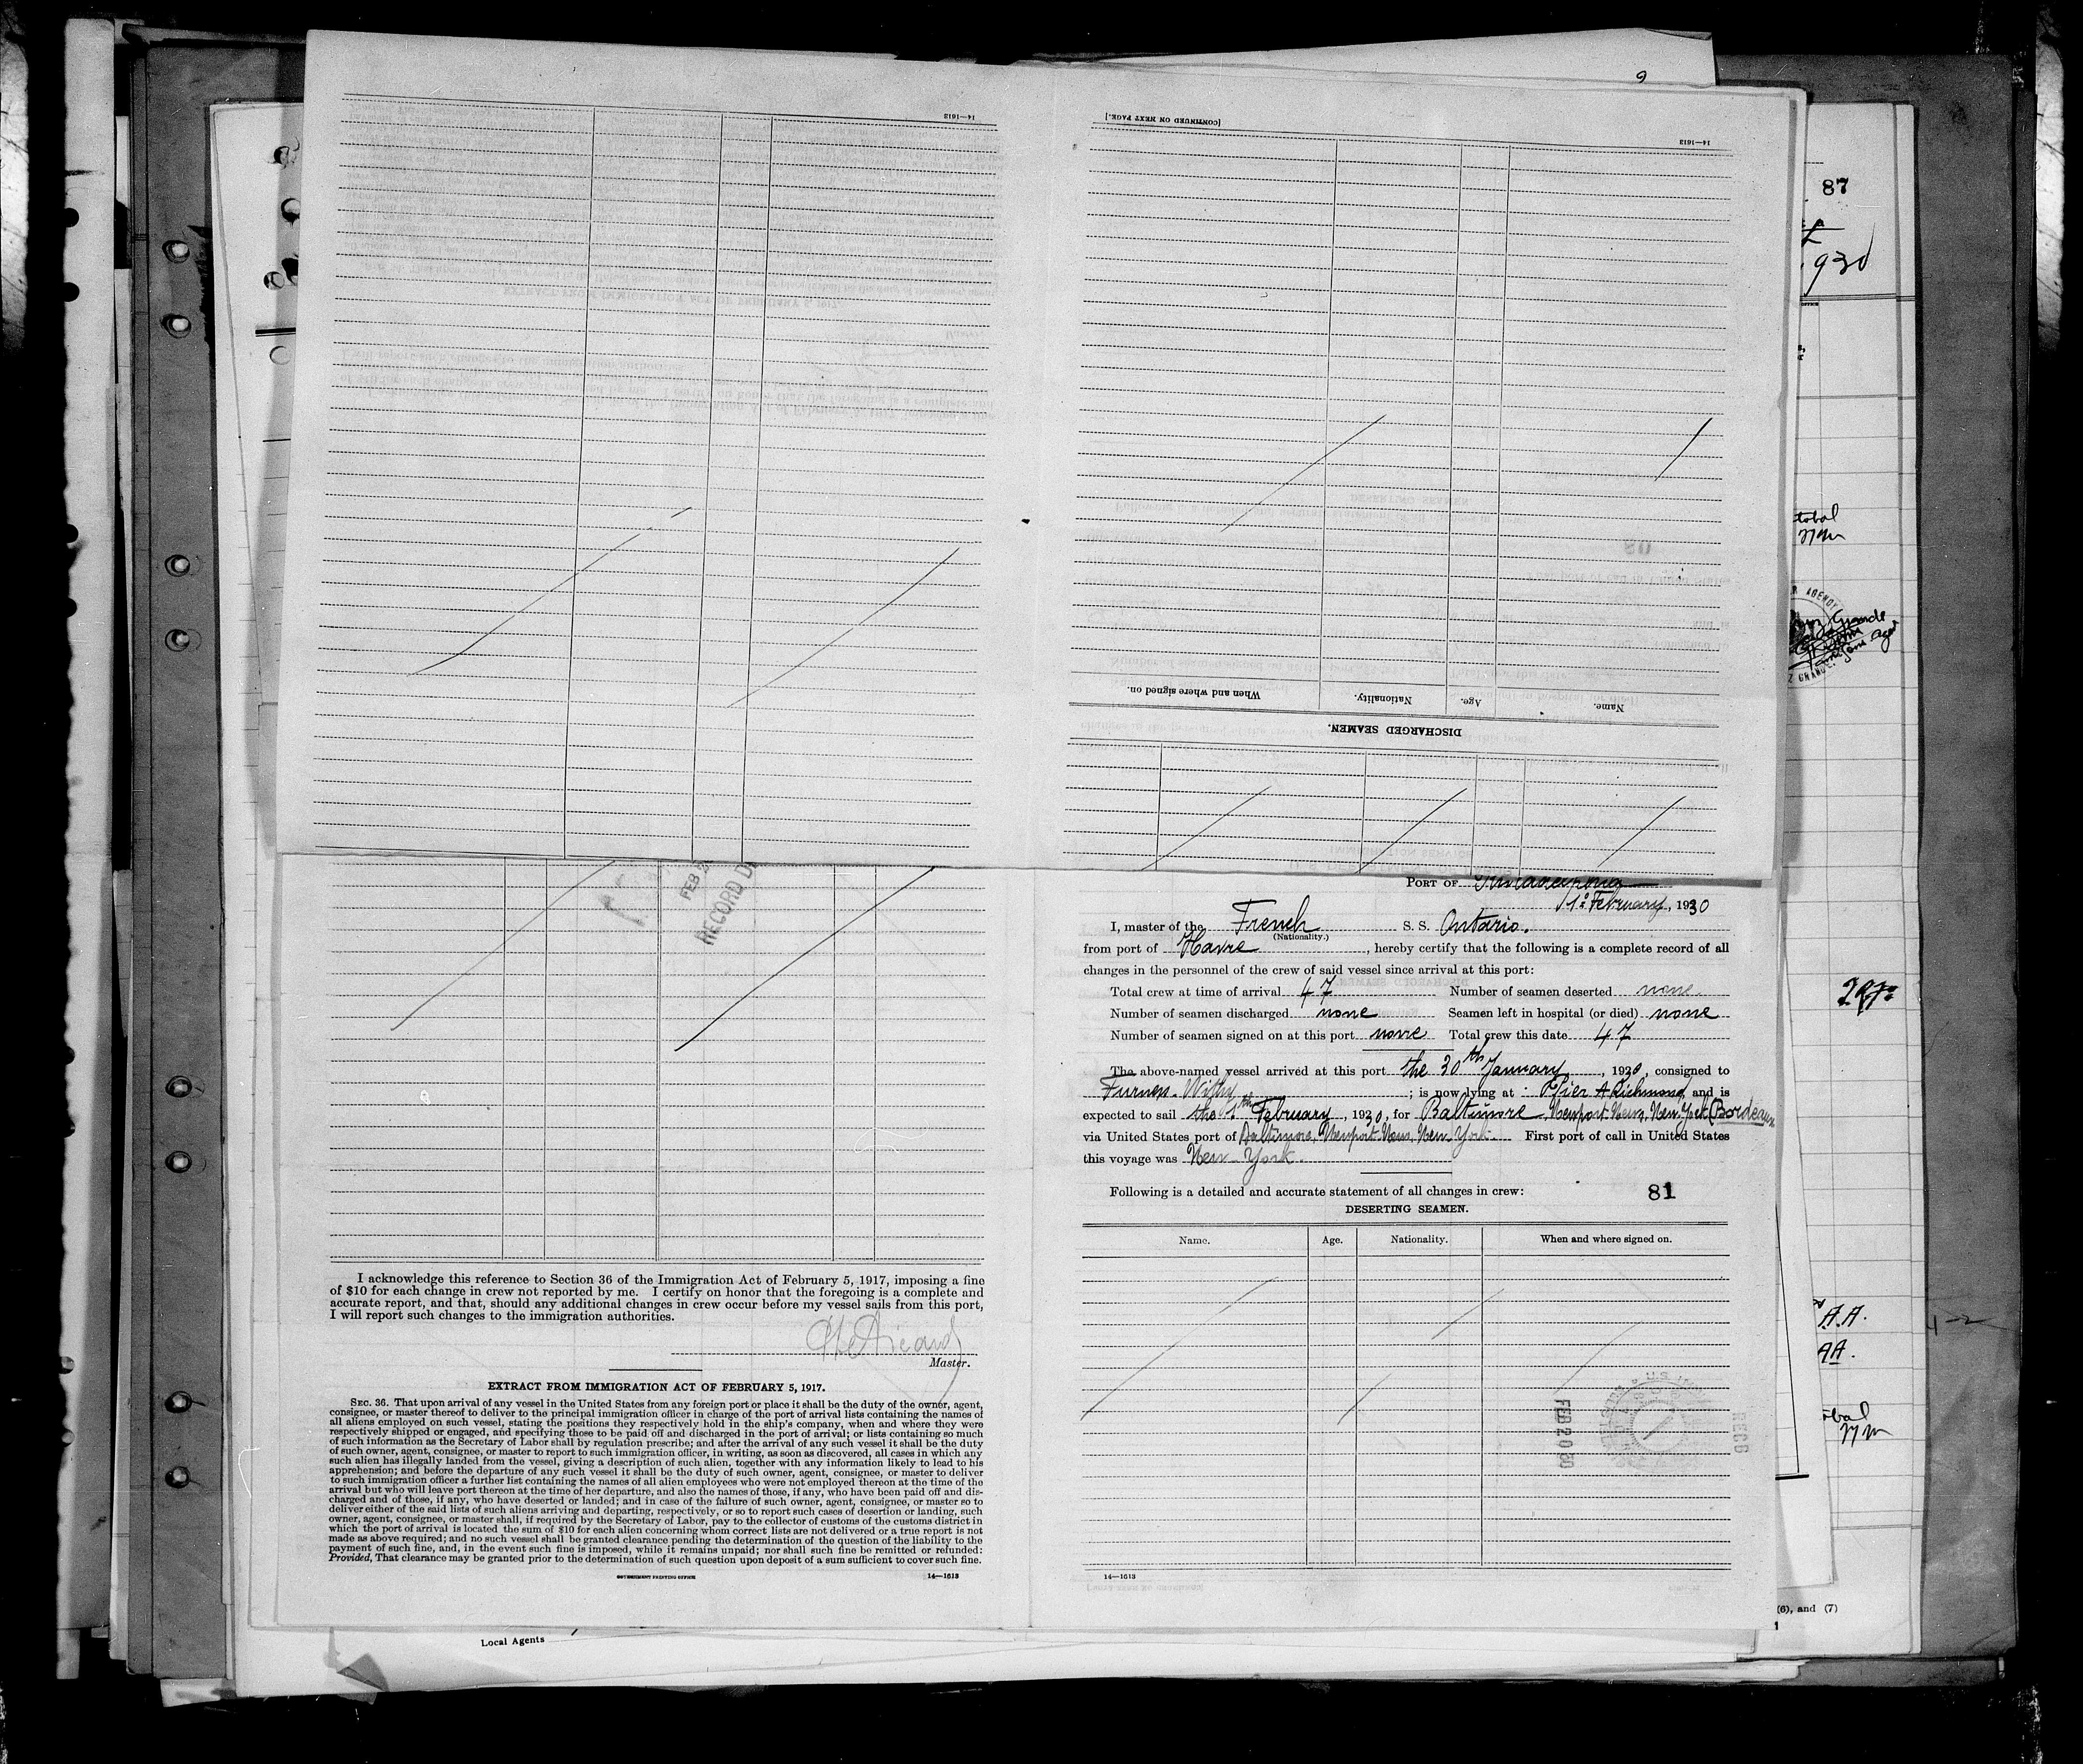 9
14—1613
[CONTINUED ON NEXT PAGE.]
14—1613
When and where signed on.
Nationality.
Age.
Name.
DISCHARGED SEAMEN.
FEB 2
RECORD D
PORT OF Philadelphia
1º February, 1930
I, master of the French S. S. Ontario.
(Nationality.)
from port of Havre, hereby certify that the following is a complete record of all
changes in the personnel of the crew of said vessel since arrival at this port:
Total crew at time of arrival 47 Number of seamen deserted none.
Number of seamen discharged none Seamen left in hospital (or died) none
Number of seamen signed on at this port none Total crew this date 47
The above-named vessel arrived at this port the 30th January, 1930, consigned to
Furness-Withy; is now lying at Pier A Richmond, and is
expected to sail the 1th February, 1930, for Baltimore Newport News, New York (Bordeaux
via United States port of Baltimore, Newport News, New York. First port of call in United States
this voyage was New-York.
Following is a detailed and accurate statement of all changes in crew:
81
DESERTING SEAMEN.
Name. Age. Nationality. When and where signed on.
FEB 20 30
REC6
14—1613
I acknowledge this reference to Section 36 of the Immigration Act of February 5, 1917, imposing a fine
of $10 for each change in crew not reported by me. I certify on honor that the foregoing is a complete and
accurate report, and that, should any additional changes in crew occur before my vessel sails from this port,
I will report such changes to the immigration authorities.
Master.
EXTRACT FROM IMMIGRATION ACT OF FEBRUARY 5, 1917.
SEC. 36. That upon arrival of any vessel in the United States from any foreign port or place it shall be the duty of the owner, agent,
consignee, or master thereof to deliver to the principal immigration officer in charge of the port of arrival lists containing the names of
all aliens employed on such vessel, stating the positions they respectively hold in the ship's company, when and where they were
respectively shipped or engaged, and specifying those to be paid off and discharged in the port of arrival; or lists containing so much
of such information as the Secretary of Labor shall by regulation prescribe; and after the arrival of any such vessel it shall be the duty
of such owner, agent, consignee, or master to report to such immigration officer, in writing, as soon as discovered, all cases in which any
such alien has illegally landed from the vessel, giving a description of such alien, together with any information likely to lead to his
apprehension; and before the departure of any such vessel it shall be the duty of such owner, agent, consignee, or master to deliver
to such immigration officer a further list containing the names of all alien employees who were not employed thereon at the time of the
arrival but who will leave port thereon at the time of her departure, and also the names of those, if any, who have been paid off and dis-
charged and of those, if any, who have deserted or landed; and in case of the failure of such owner, agent, consignee, or master so to
deliver either of the said lists of such aliens arriving and departing, respectively, or so to report such cases of desertion or landing, such
owner, agent, consignee, or master shall, if required by the Secretary of Labor, pay to the collector of customs of the customs district in
which the port of arrival is located the sum of $10 for each alien concerning whom correct lists are not delivered or a true report is not
made as above required; and no such vessel shall be granted clearance pending the determination of the question of the liability to the
payment of such fine, and, in the event such fine is imposed, while it remains unpaid; nor shall such fine be remitted or refunded:
Provided, That clearance may be granted prior to the determination of such question upon deposit of a sum sufficient to cover such fine.
GOVERNMENT PRINTING OFFICE
14—1613
Local Agents
87
930
tobal
A.A.
AA.
obal
(6), and (7)